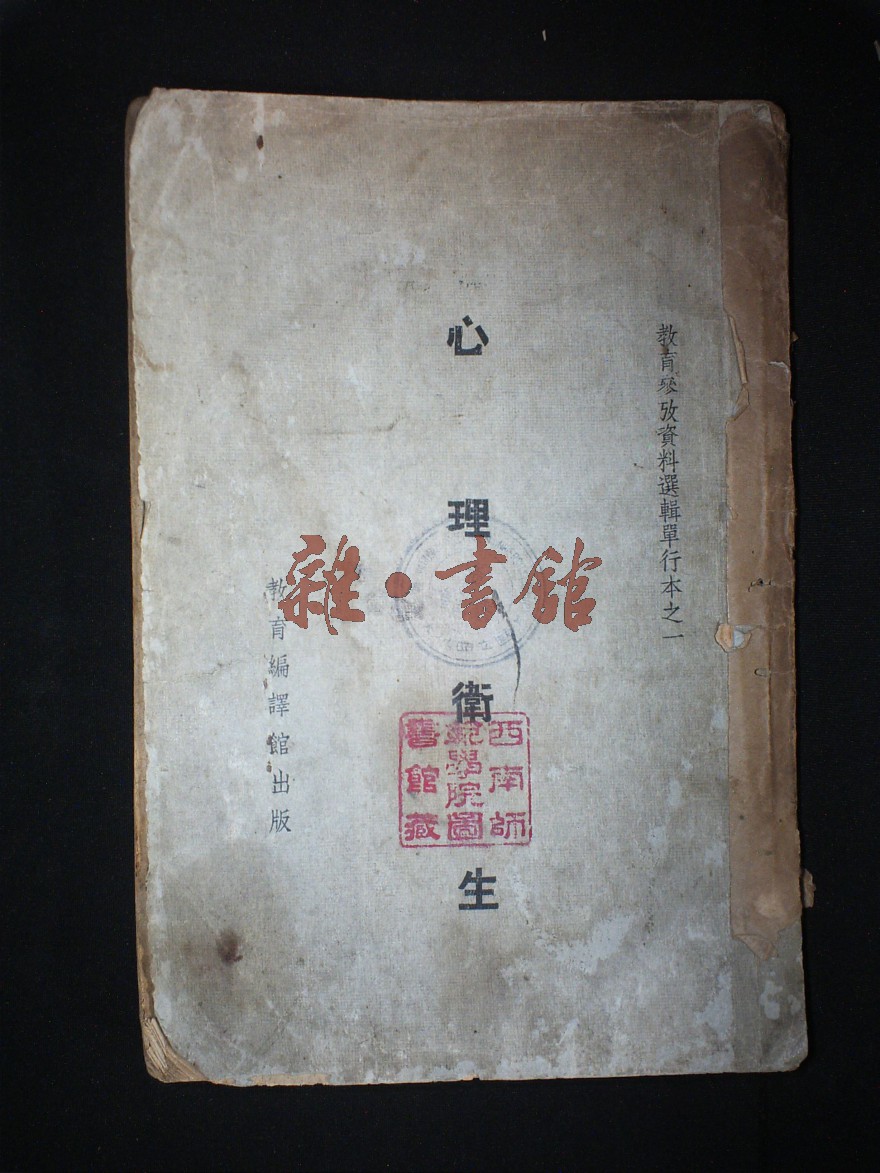 教育參攷資料選輯單行本之一
心理衛生
教育編譯館出版
雜·書館
西南師
範學院圖
書館藏